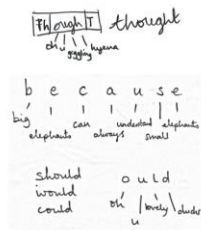 Thought thought
oh u giggling hyena
b e c a u s e
big elephants can always understand small elephants
should
would
could
o u l d
oh u lovely ducks